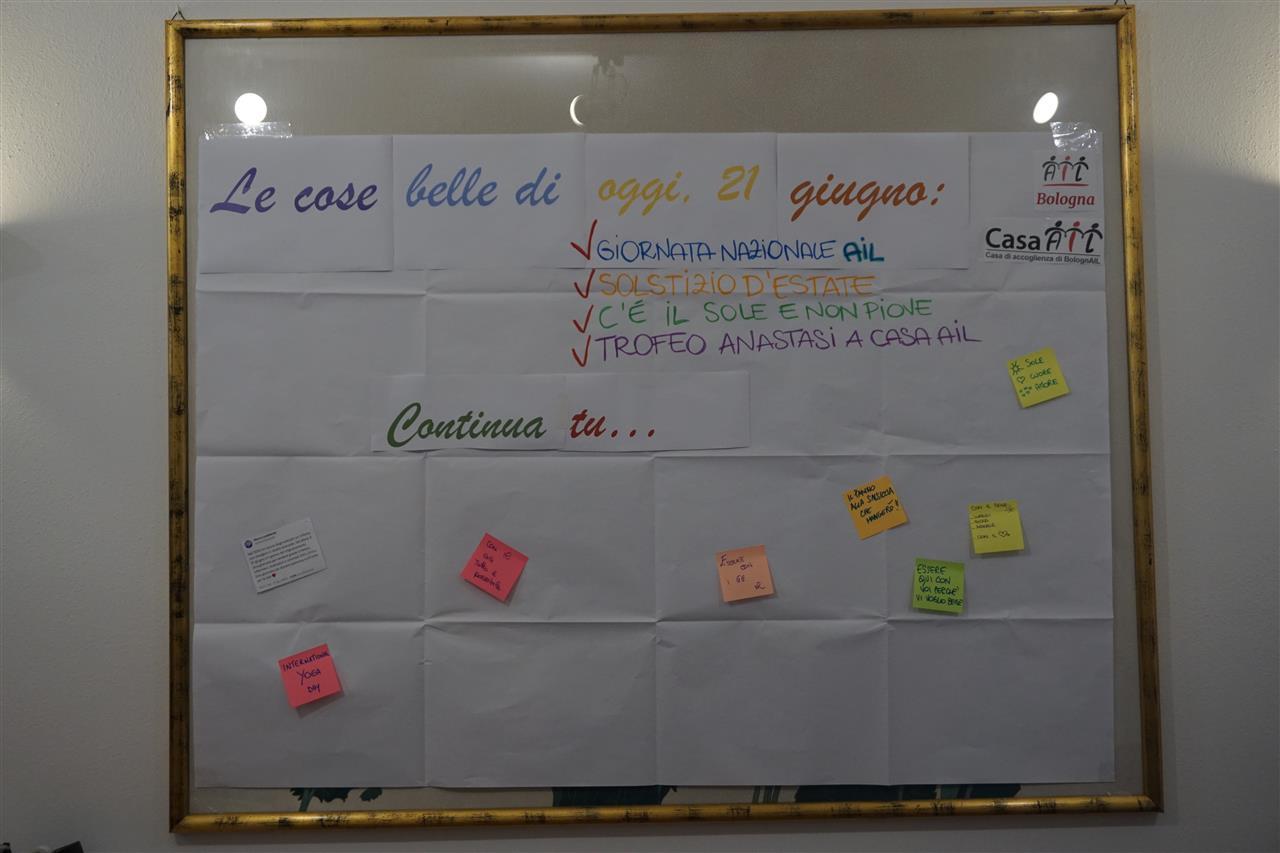 Le cose belle di oggi, 21 giugno:
AIL
Bologna
Casa AIL
Casa di accoglienza di BolognAIL
GIORNATA NAZIONALE AIL
SOLSTIZIO D'ESTATE
C'É IL SOLE E NON PIOVE
TROFEO ANASTASI A CASA AIL
SOLE
CUORE
AMORE
Continua tu...
IL PANINO
ALLA SALSICCIA
CHE
MANGERÒ!
ESSERE
QUI CON
VOI PERCHE'
VI VOGLIO BENE
INTERNATIONAL
YOGA
DAY